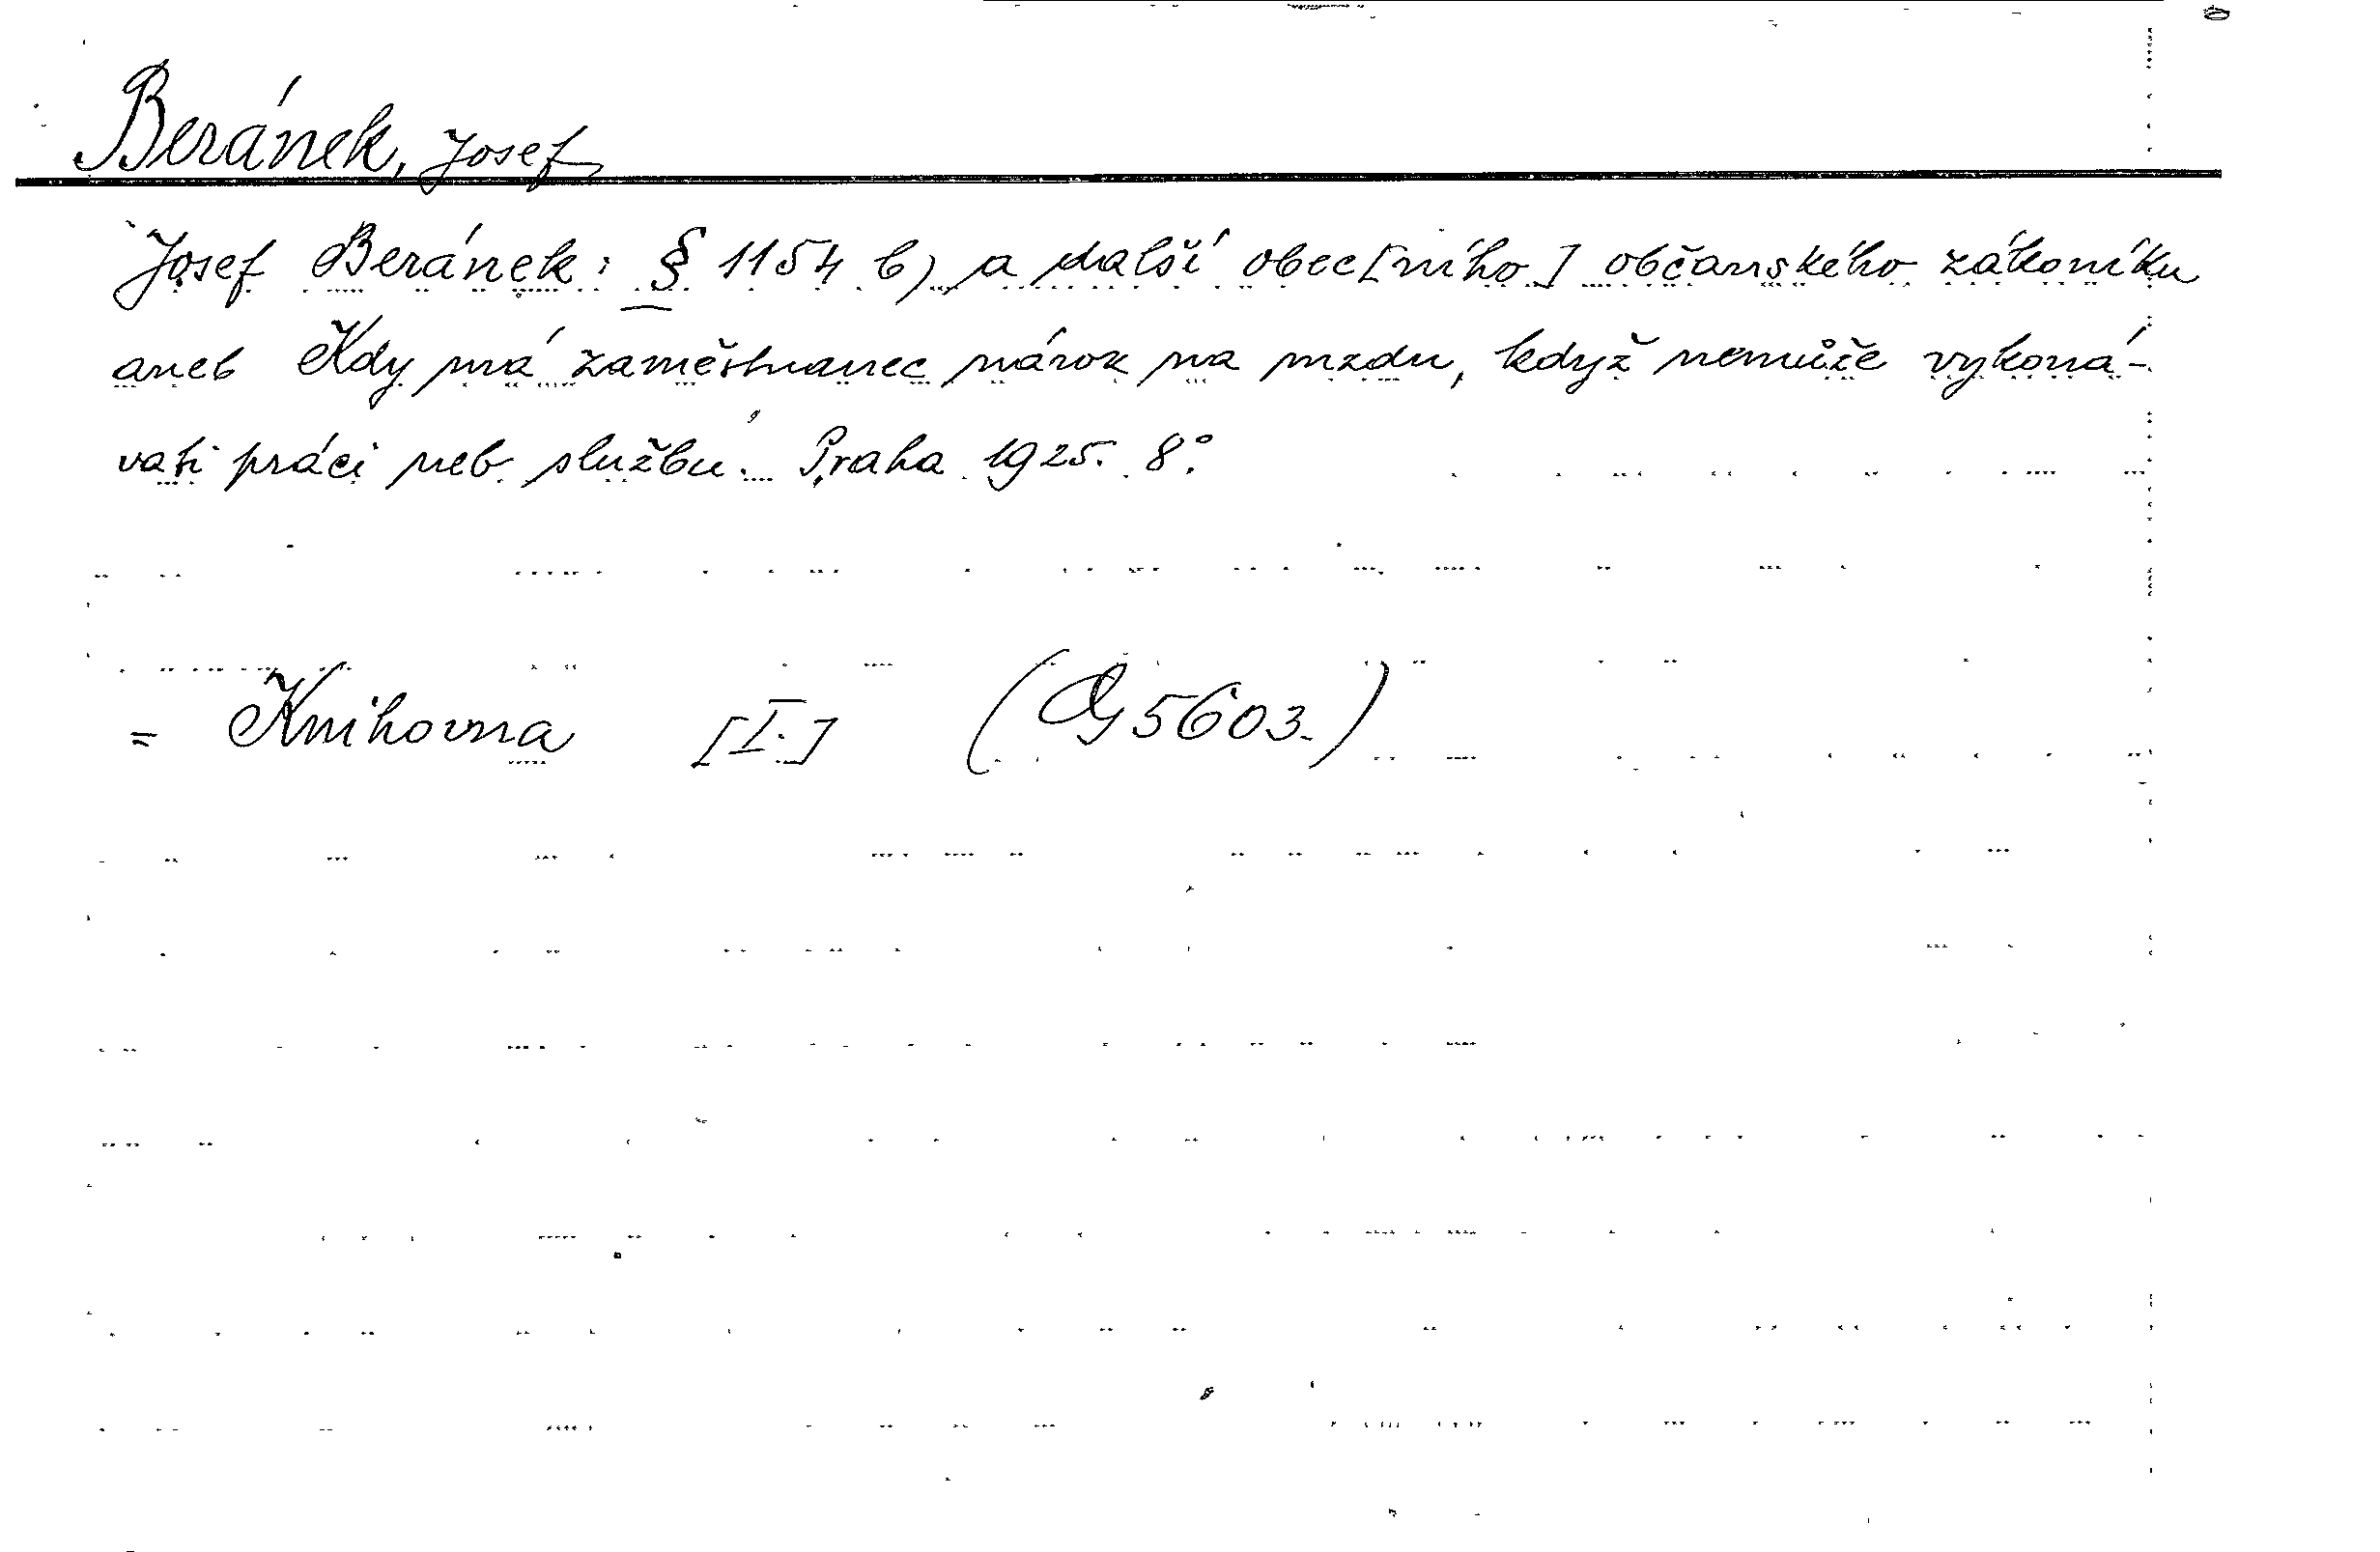 Beránek, Josef
Josef Beránek: § 1154 b) a další obec[ního] občanského zákoníku
aneb Kdy má zaměstnanec nárok na mzdu, když nemůže vykoná-
vati práci neb službu. Praha 1925. 8°.
= Knihovna [I.] (Og 5603.)